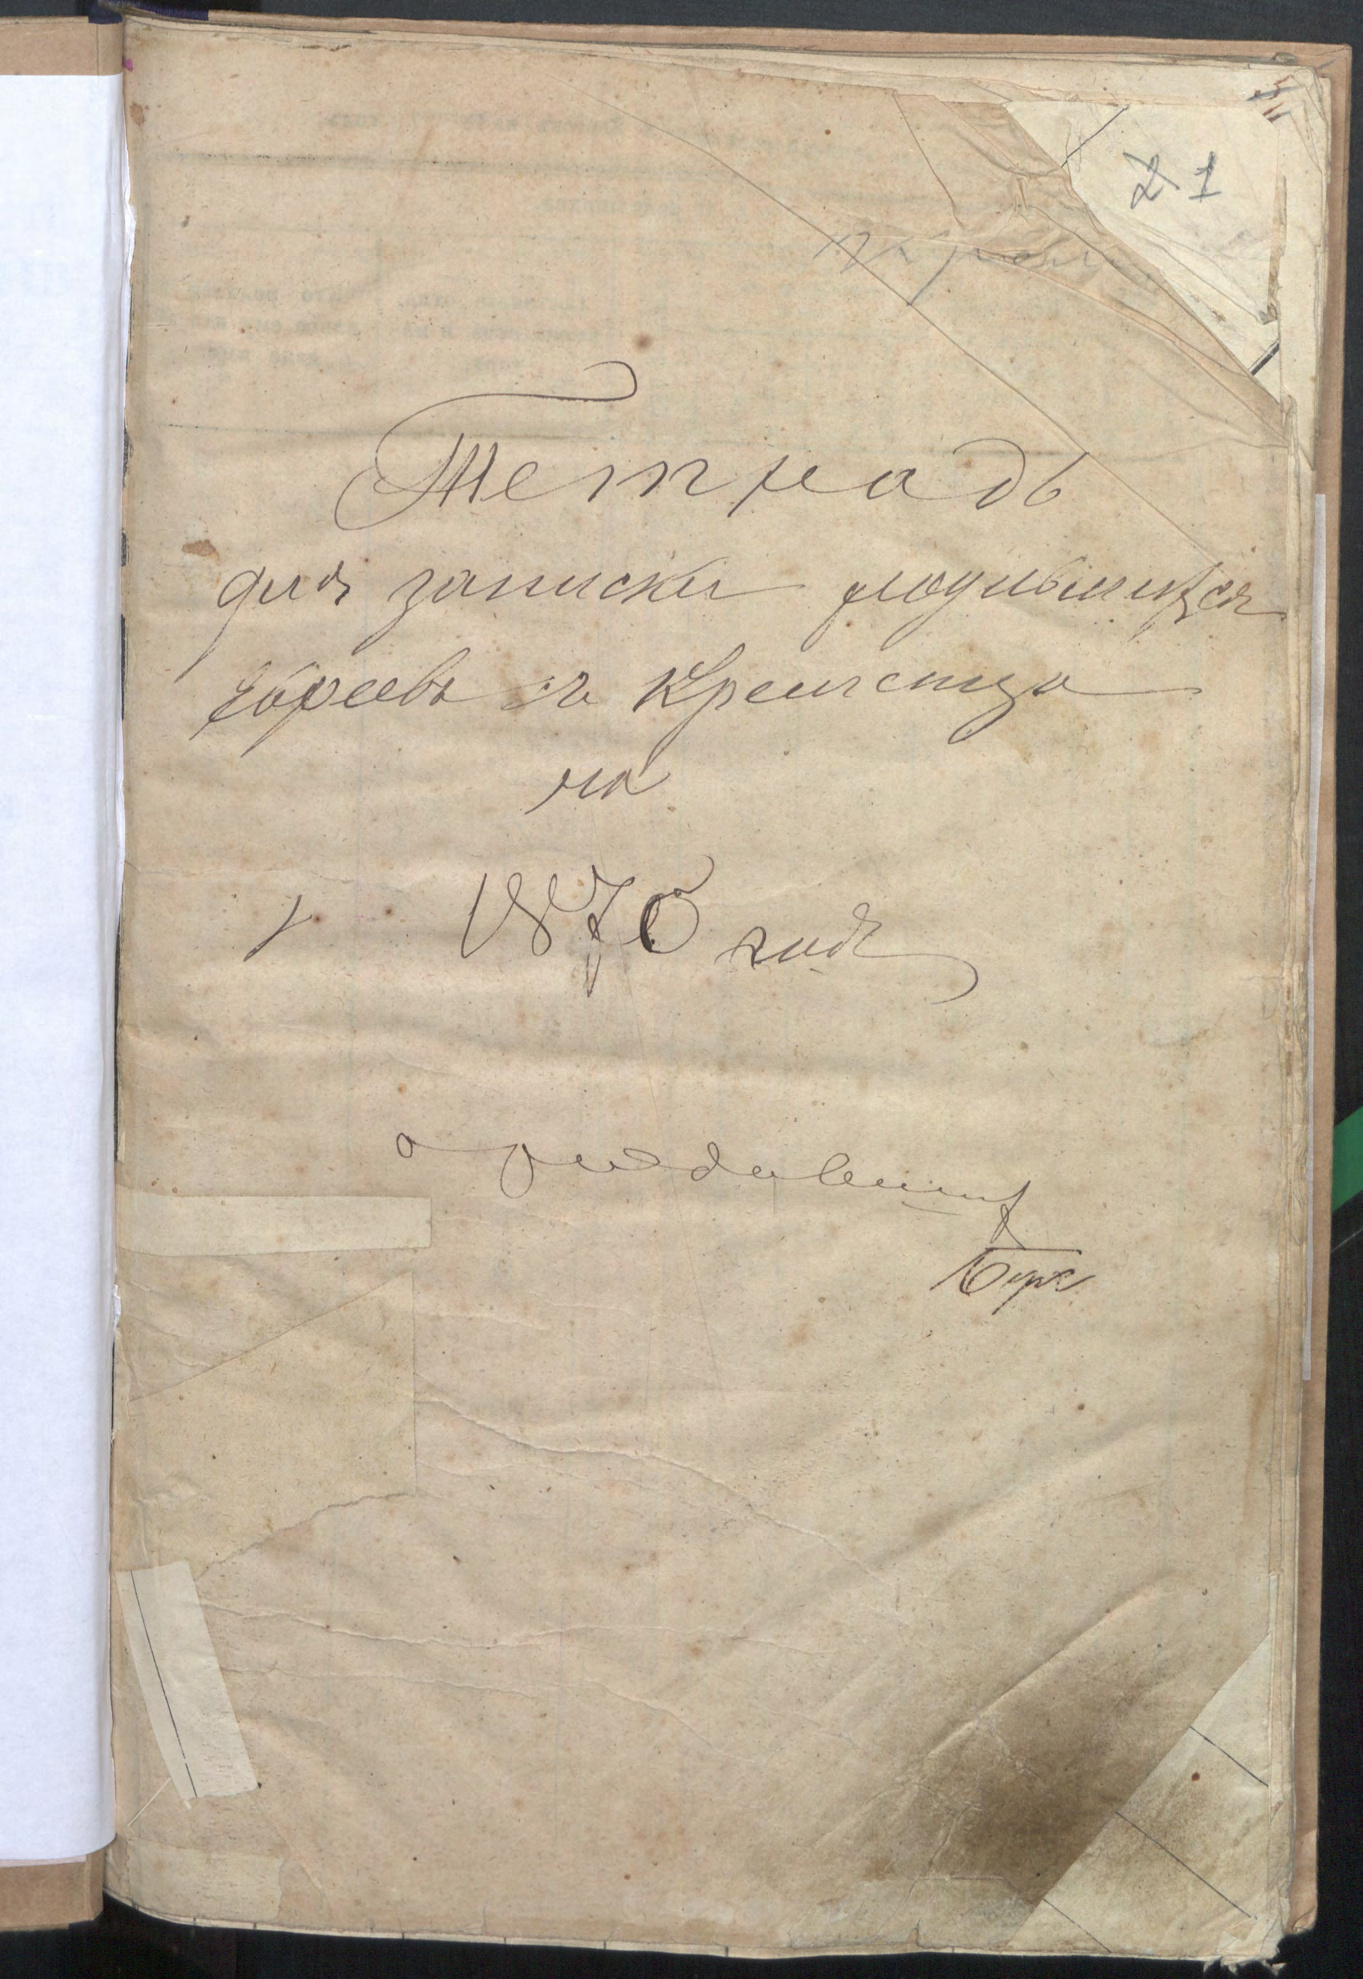 21
Тетрадь
для записки родившихся
Евреевъ г. Кременца
на
1870 годъ